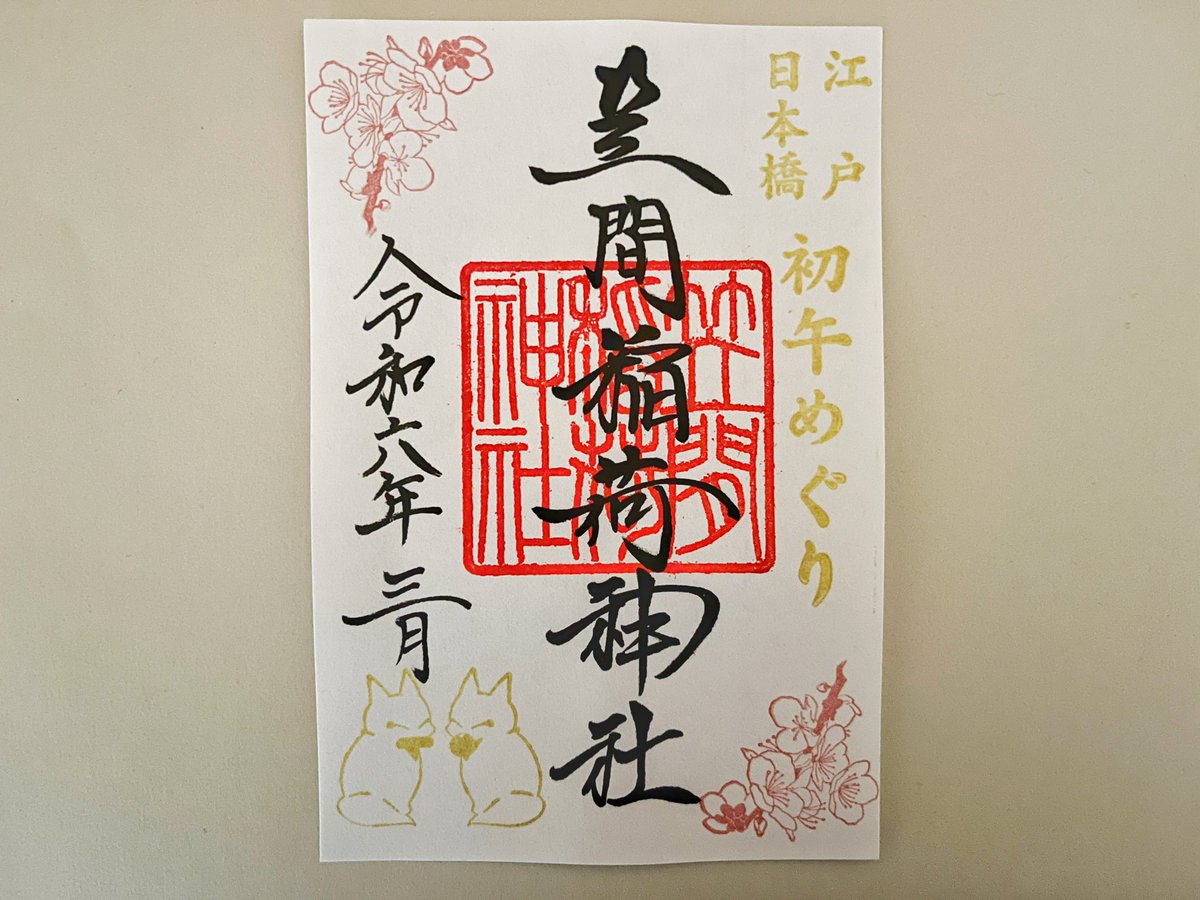 江戸
日本橋
初午めぐり
笠間稲荷神社
笠間
稲荷
神社
令和六年三月